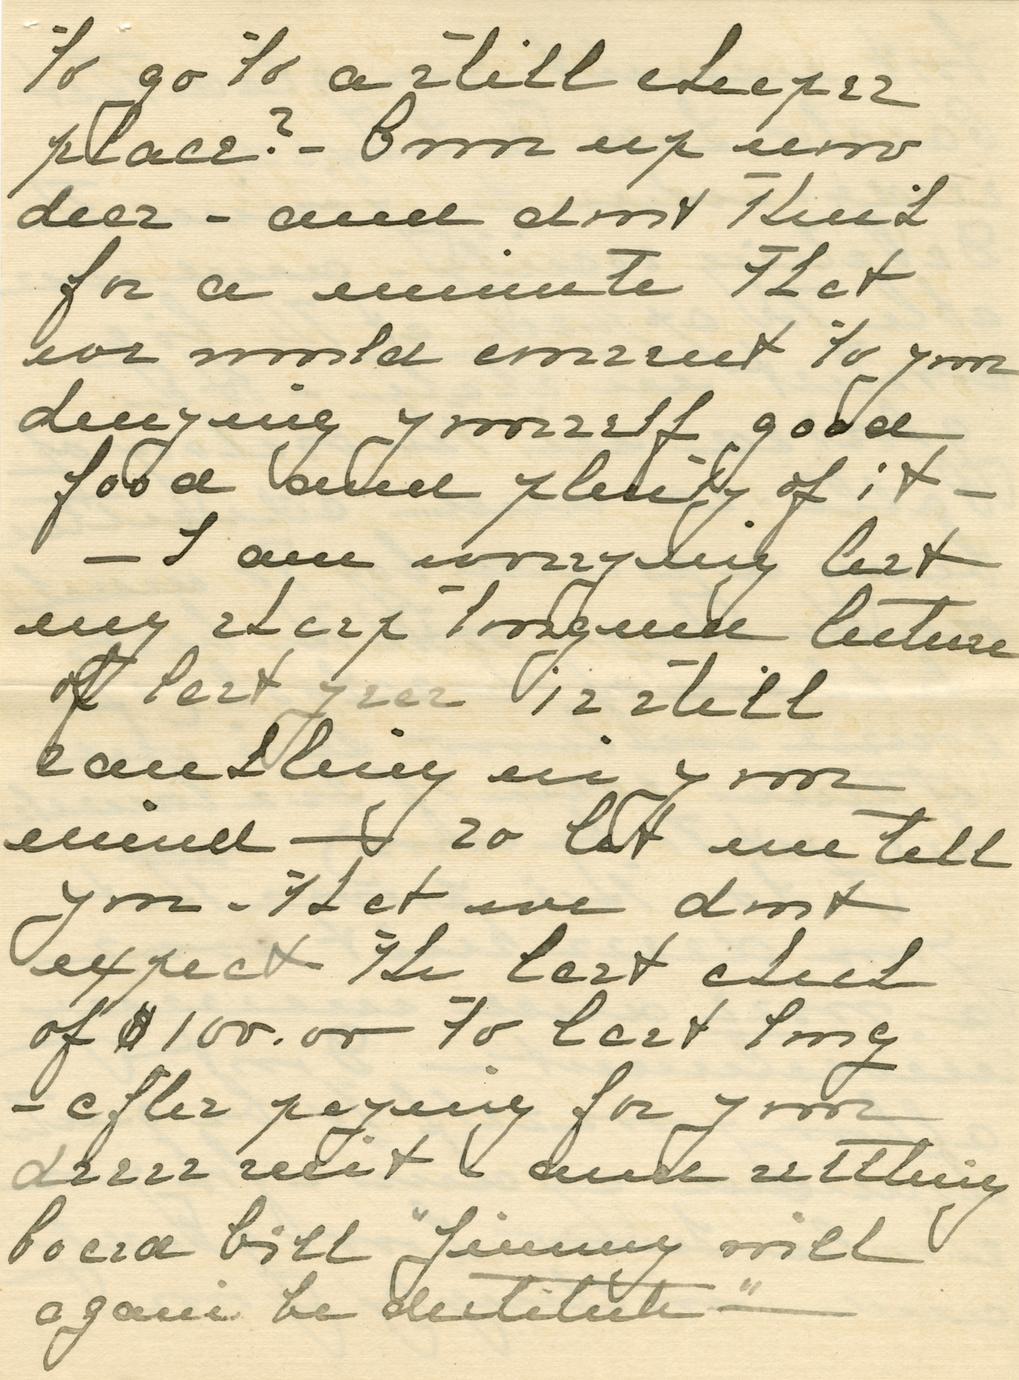 to go to a still cheaper
place? - Own up now
dear - and dont think
for a minute that
we would consent to your
denying yourself good
food and plenty of it -
- I am worrying lest
my sharp tongued lecture
of last year is still
rankling in your
mind - so let me tell
you - that we dont
expect the last check
of $100.00 to last long
- after paying for your
dress suit and settling
board bill "Jimmy will
again be destitute" -